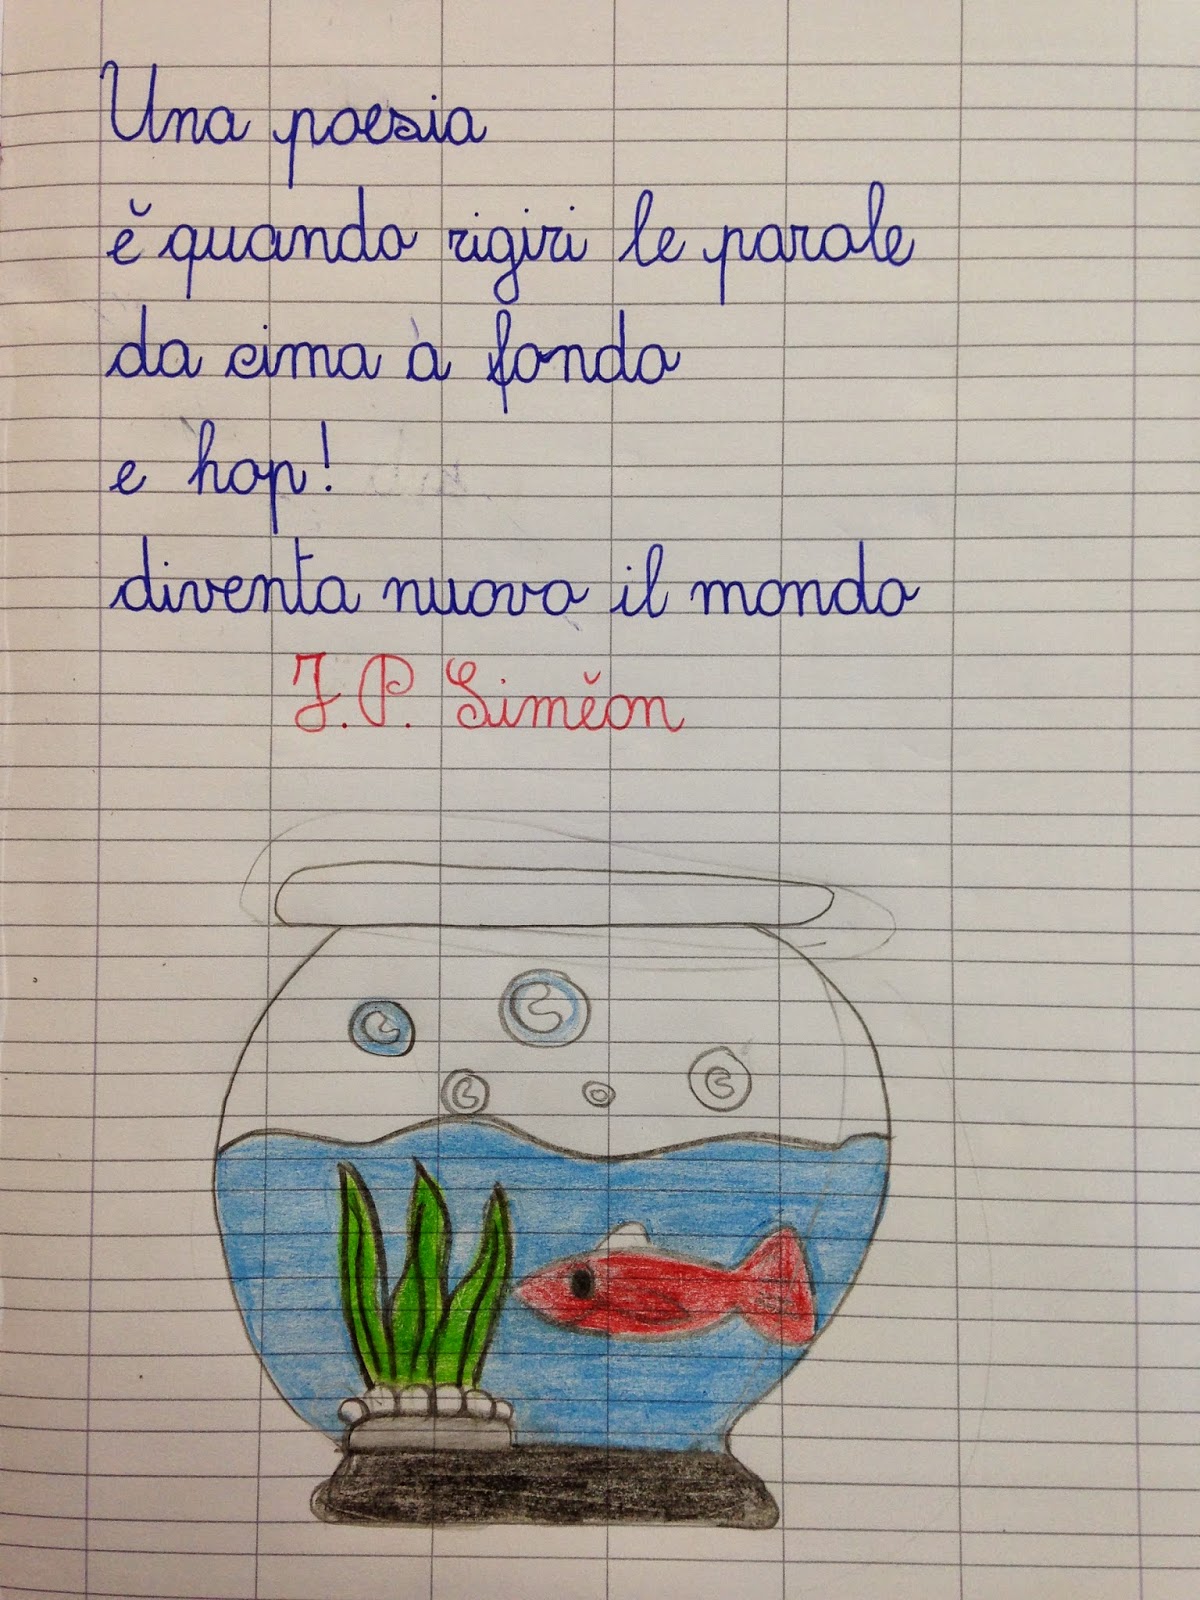 Una poesia
ĕ quando rigiri le parole
da cima a fondo
e hop!
diventa nuovo il mondo
J.P. Simĕon